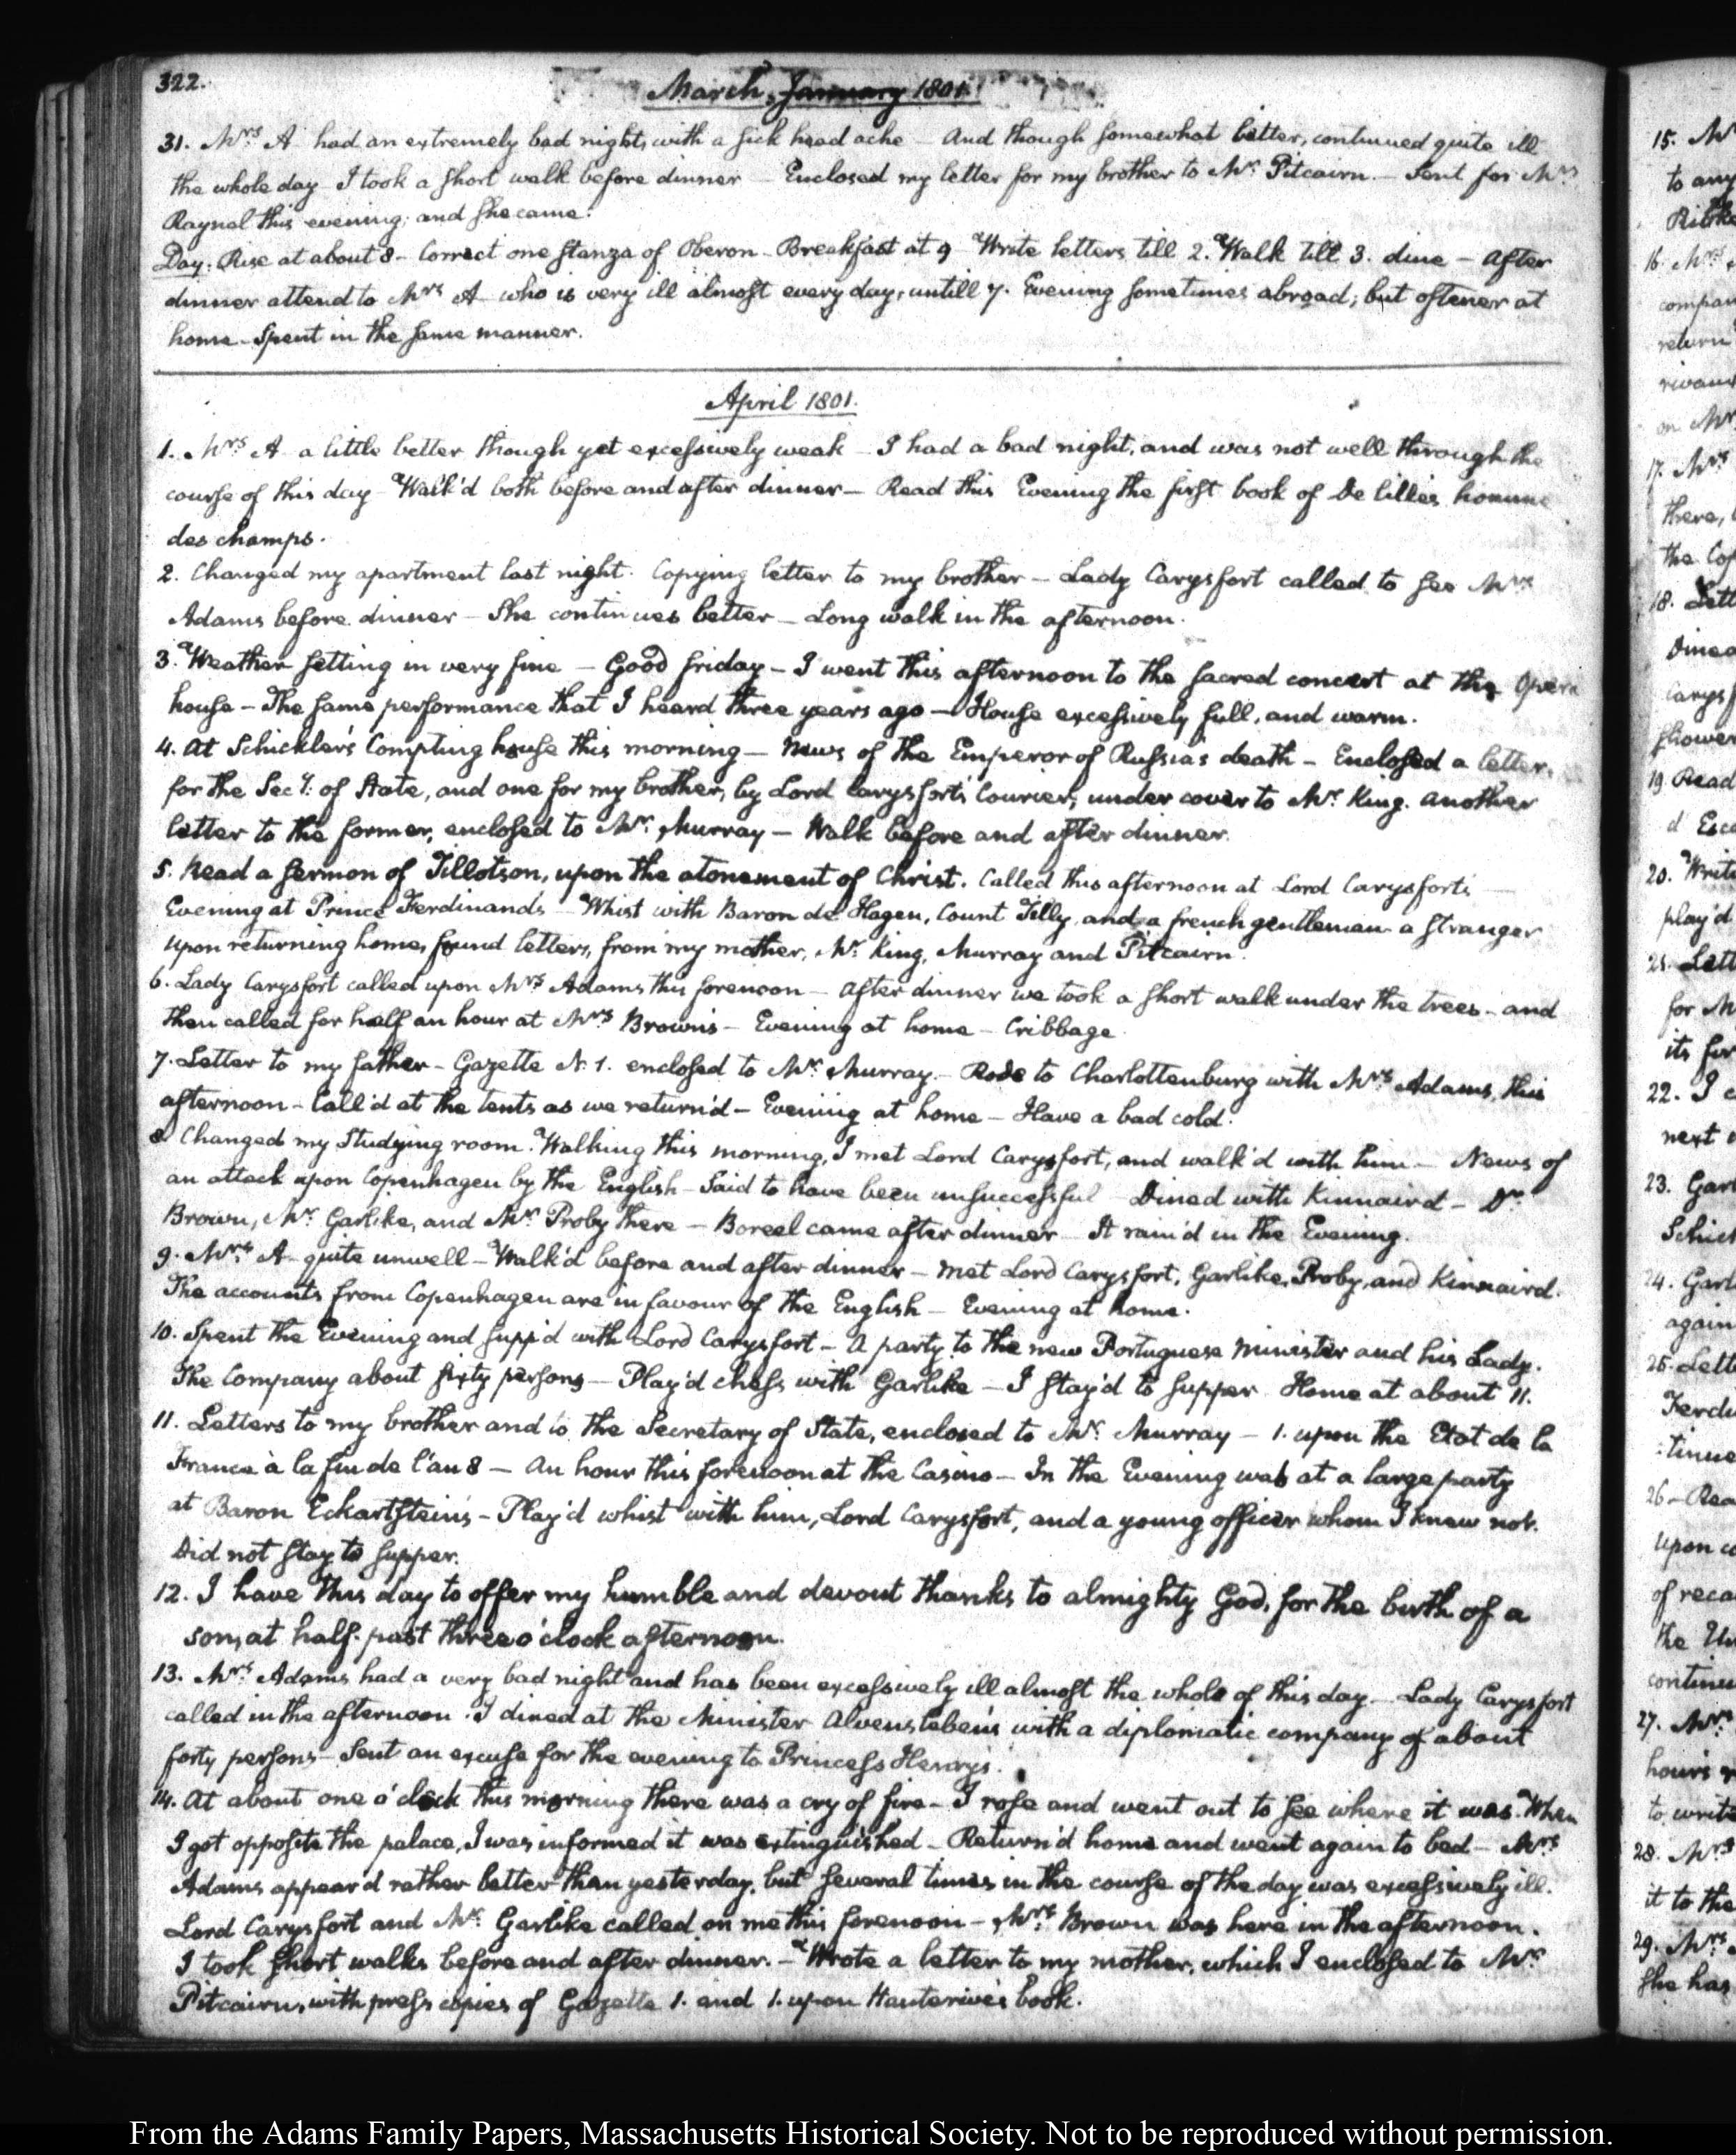 322.
March, January 1801.
31. Mrs A. had an extremely bad night, with a sick head ache — And though somewhat better, continued quite ill
the whole day — I took a short walk before dinner — Enclosed my letter for my brother to Mr Pitcairn. — Sent for Mrs
Raynal this evening; and she came.
Day: Rise at about 8 — Correct one stanza of Oberon — Breakfast at 9 — Write letters till 2. Walk till 3. dine — After
dinner attend to Mrs A — who is very ill almost every day, untill 7. Evening sometimes abroad; but oftener at
home — Spent in the same manner.
April 1801.
1. Mrs A — a little better though yet excessively weak — I had a bad night, and was not well through the
course of this day — Walk'd both before and after dinner — Read this Evening the first book of De lille's homme
des champs.
2. Changed my apartment last night. Copying letter to my brother — Lady Carysfort called to see Mrs
Adams before dinner — She continues better — Long walk in the afternoon.
3. Weather setting in very fine — Good friday — I went this afternoon to the sacred concert at the Opera
house — The same performance that I heard three years ago — House excessively full, and warm.
4. At Schickler's Compting house this morning — News of the Emperor of Russia's death — Enclosed a letter,
for the Secy: of State, and one for my brother, by Lord Carysfort's Courier, under cover to Mr King. Another
letter to the former, enclosed to Mr. Murray — Walk before and after dinner.
5. Read a sermon of Tillotson, upon the atonement of Christ. Called this afternoon at Lord Carysfort's —
Evening at Prince Ferdinand's — Whist with Baron de Hagen, Count Tilly, and a french gentleman a stranger
Upon returning home, found letters, from my mother, Mr King, Murray and Pitcairn.
6. Lady Carysfort called upon Mrs Adams this forenoon — After dinner we took a short walk under the trees — and
then called for half an hour at Mrs Brown's — Evening at home — Cribbage
7. Letter to my father — Gazette N. 1. enclosed to Mr Murray. — Rode to Charlottenburg with Mrs Adams, this
afternoon — Call'd at the tents as we return'd — Evening at home — Have a bad cold.
8. Changed my Studying room. Walking this morning, I met Lord Carysfort, and walk'd with him — News of
an attack upon Copenhagen by the English — Said to have been unsuccessful — Dined with Kinnaird — Dr
Brown, Mr. Garlike, and Mr Proby there — Boreel came after dinner — It rain'd in the Evening.
9. Mrs A — quite unwell — Walk'd before and after dinner — Met Lord Carysfort, Garlike, Proby, and Kinnaird.
The accounts from Copenhagen are in favour of the English — Evening at home.
10. Spent the Evening and supp'd with Lord Carysfort — A party to the new Portuguese Minister and his Lady.
The Company about sixty persons — Play'd chess with Garlike — I stay'd to supper Home at about 11.
11. Letters to my brother and to the Secretary of State, enclosed to Mr. Murray — 1. upon the Etat de la
France à la fin de l'an 8 — An hour this forenoon at the Casino — In the Evening was at a large party
at Baron Eckartstein's — Play'd whist with him, Lord Carysfort, and a young officer whom I knew not.
Did not stay to supper.
12. I have this day to offer my humble and devout thanks to almighty God, for the birth of a
son, at half-past three o'clock afternoon.
13. Mrs Adams had a very bad night and has been excessively ill almost the whole of this day — Lady Carysfort
called in the afternoon. I dined at the Minister Alvensleben's with a diplomatic company of about
forty persons — Sent an excuse for the evening to Princess Henry's.
14. At about one o'clock this morning there was a cry of fire — I rose and went out to see where it was. When
I got opposite the palace, I was informed it was extinguished — Return'd home and went again to bed — Mrs
Adams appear'd rather better than yesterday, but several times in the course of the day was excessively ill.
Lord Carysfort and Mr. Garlike called on me this forenoon — Mrs Brown was here in the afternoon.
I took short walks before and after dinner. — Wrote a letter to my mother, which I enclosed to Mr
Pitcairn, with press copies of Gazette 1. and 1. upon Hauterive's book.
From the Adams Family Papers, Massachusetts Historical Society. Not to be reproduced without permission.